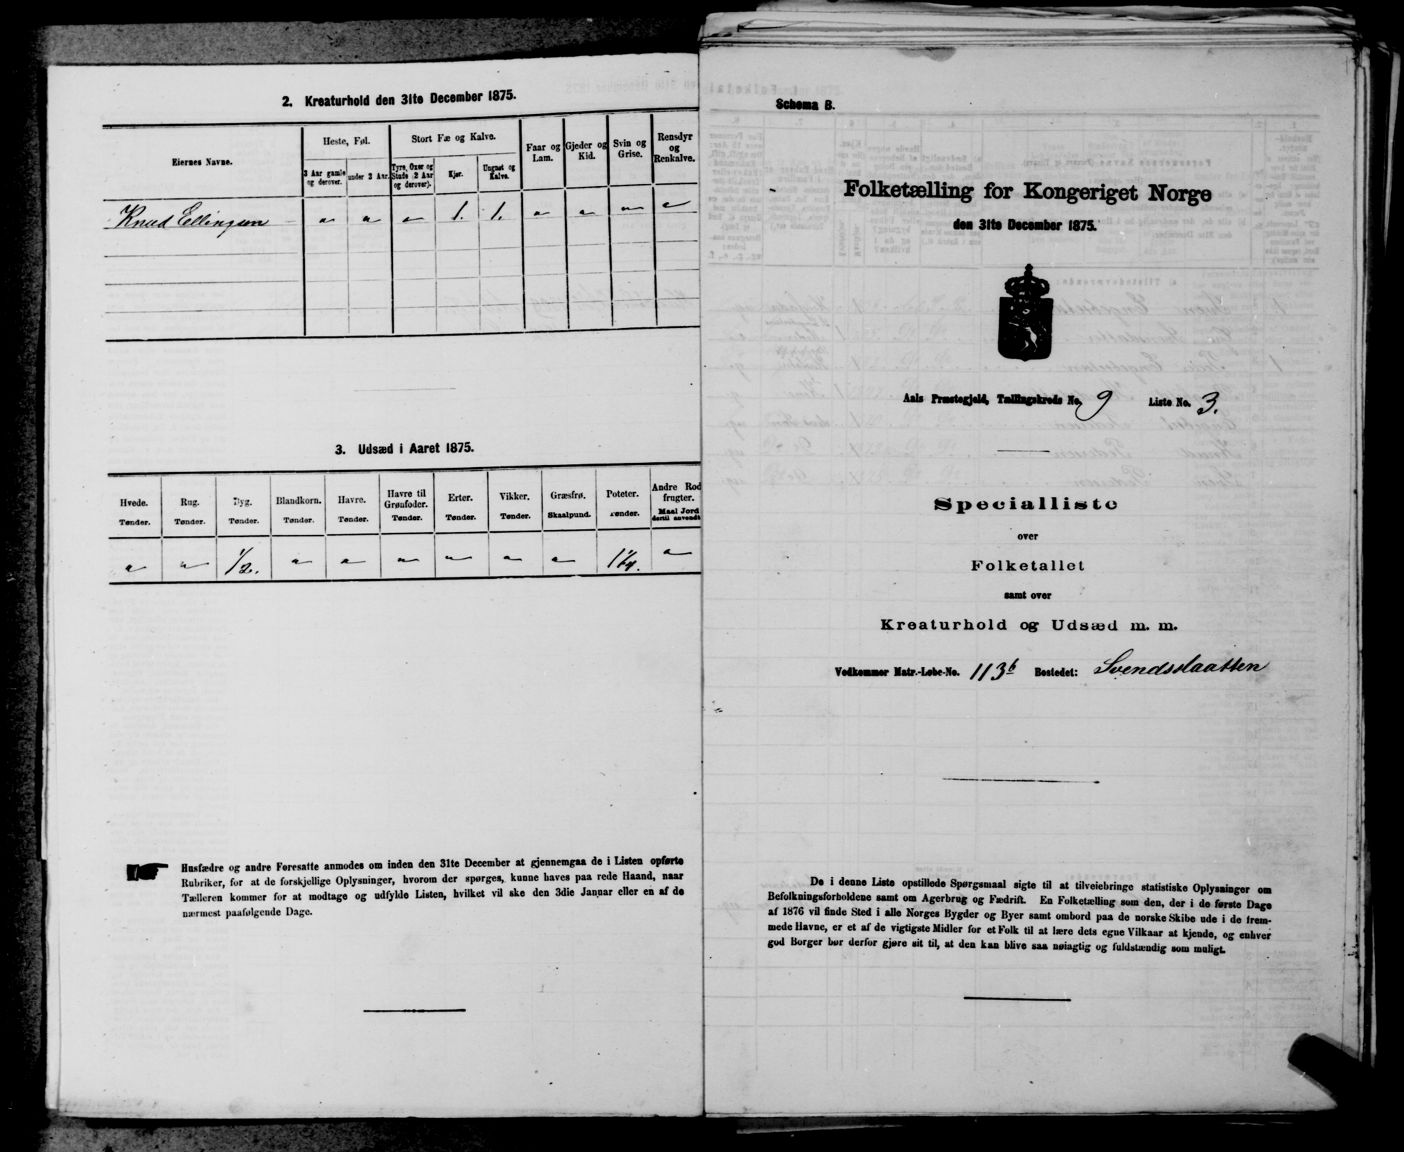 2. Kreaturhold den 31te December 1875.
Eiernes Navne.
Heste, Føl.
Stort Fæ og Kalve.
Faar og Lam.
Gjeder og Kid.
Svin og Grise.
Rensdyr og Renkalve.
3 Aar gamle og derover.
under 3 Aar.
Tyre, Oxer og Stude (2 Aar og derover).
Kjør.
Ungnøt og Kalve.
Knud Ellingsen " " " 1. 1. " " " "
3. Udsæd i Aaret 1875.
Hvede. Rug. Byg. Blandkorn. Havre. Havre til Grønfoder. Erter. Vikker. Græsfrø. Poteter. Andre Rodfrugter.
Tønder. Tønder. Tønder. Tønder. Tønder. Tønder. Tønder. Tønder. Skaalpund. Tønder. Maal Jord dertil anvendt
" " 1/2. " " " " " " 1 1/4. "
Husfædre og andre Foresatte anmodes om inden den 31te December at gjennemgaa de i Listen opførte
Rubriker, for at de forskjellige Oplysninger, hvorom der spørges, kunne haves paa rede Haand, naar
Tælleren kommer for at modtage og udfylde Listen, hvilket vil ske den 3die Januar eller en af de
nærmest paafølgende Dage.
Schema B.
Folketælling for Kongeriget Norge
den 31te December 1875.
Aals Præstegjeld, Tællingskreds No. 9 Liste No. 3.
Specialliste
over
Folketallet
samt over
Kreaturhold og Udsæd m. m.
Vedkommer Matr.-Løbe-No. 113b Bostedet: Svendsslaatten
De i denne Liste opstillede Spørgsmaal sigte til at tilveiebringe statistiske Oplysninger om
Befolkningsforholdene samt om Agerbrug og Fædrift. En Folketælling som den, der i de første Dage
af 1876 vil finde Sted i alle Norges Bygder og Byer samt ombord paa de norske Skibe ude i de frem-
mede Havne, er et af de vigtigste Midler for et Folk til at lære dets egne Vilkaar at kjende, og enhver
god Borger bør derfor gjøre sit til, at den kan blive saa nøiagtig og fuldstændig som muligt.